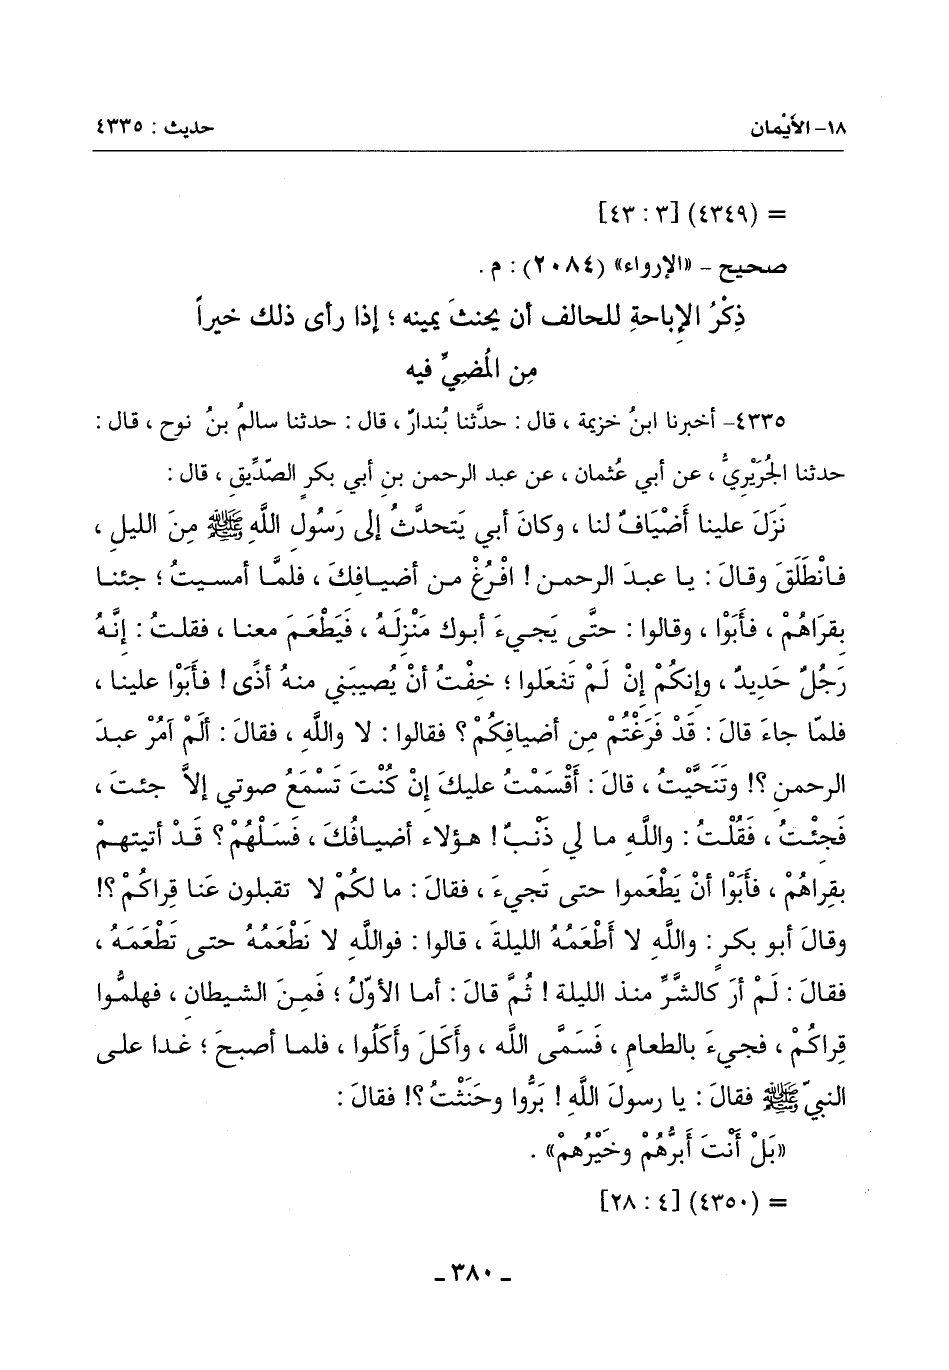 ١٨- الأَيْمان حديث : ٤٣٣٥
= (٤٣٤٩) [٣ : ٤٣]
صحيح - «الإرواء» (٢٠٨٤) : م .
ذِكْرُ الإِباحةِ للحالف أن يحنثَ يمينه ؛ إذا رأى ذلك خيراً
مِن المُضيِّ فيه
٤٣٣٥- أخبرنا ابنُ خزيمة ، قال : حدَّثنا بُندارٌ ، قال : حدثنا سالمُ بنُ نوح ، قال :
حدثنا الجُرَيْرِيُّ ، عن أبي عُثمان ، عن عبد الرحمن بنِ أبي بكرٍ الصِّدِّيق ، قال :
نَزَلَ علينا أَضْيَافٌ لنا ، وكانَ أبي يَتحدَّثُ إلى رَسُولِ اللَّهِ ﷺ مِنَ الليلِ ،
فانْطَلَقَ وقالَ : يا عبدَ الرحمن ! افْرُغْ من أضيافِكَ ، فلمَّا أمسيتُ ؛ جئنا
بقِرَاهُمْ ، فأَبَوْا ، وقالوا : حتَّى يَجيءَ أبوك مَنْزِلَهُ ، فَيَطْعَمَ معنا ، فقلتُ : إنَّهُ
رَجُلٌ حَدِيدٌ ، وإنكُمْ إنْ لَمْ تَفعلوا ؛ خِفْتُ أنْ يُصيبَني منهُ أذًى ! فأبَوْا علينا ،
فلمّا جاءَ قالَ : قَدْ فَرَغْتُمْ مِن أضيافِكُمْ ؟ فقالوا : لا واللَّهِ ، فقالَ : ألَمْ آمُرْ عبدَ
الرحمن ؟! وتَنَحَّيْتُ ، قالَ : أقْسَمْتُ عليكَ إنْ كُنْتَ تَسْمَعُ صوتي إلاَّ جئتَ ،
فَجِئْتُ ، فَقُلْتُ : واللَّهِ ما لي ذَنْبٌ ! هؤلاء أضيافُكَ ، فَسَلْهُمْ ؟ قَدْ أتيتهمْ
بقِراهُمْ ، فأَبَوْا أنْ يَطْعَموا حتى تَجيءَ ، فقالَ : ما لكُمْ لا تقبلون عَنا قِراكُمْ ؟!
وقالَ أبو بكرٍ : واللَّهِ لا أَطْعَمُهُ الليلةَ ، قالوا : فواللَّهِ لا نَطْعَمُهُ حتى تَطْعَمَهُ ،
فقالَ : لَمْ أرَ كالشَّرِّ منذ الليلة ! ثُمَّ قالَ : أما الأوّلُ ؛ فَمِنَ الشيطانِ ، فهلمُّوا
قِراكُمْ ، فجيءَ بالطعامِ ، فَسَمَّى اللَّه ، وأكَلَ وأكَلُوا ، فلما أصبحَ ؛ غدا على
النبيّ ﷺ فقالَ : يا رسولَ اللَّهِ ! بَرُّوا وحَنَثْتُ ؟! فقالَ :
«بَلْ أَنْتَ أَبَرُّهُمْ وخَيْرُهمْ» .
= (٤٣٥٠) [٤ : ٢٨]
- ٣٨٠ -